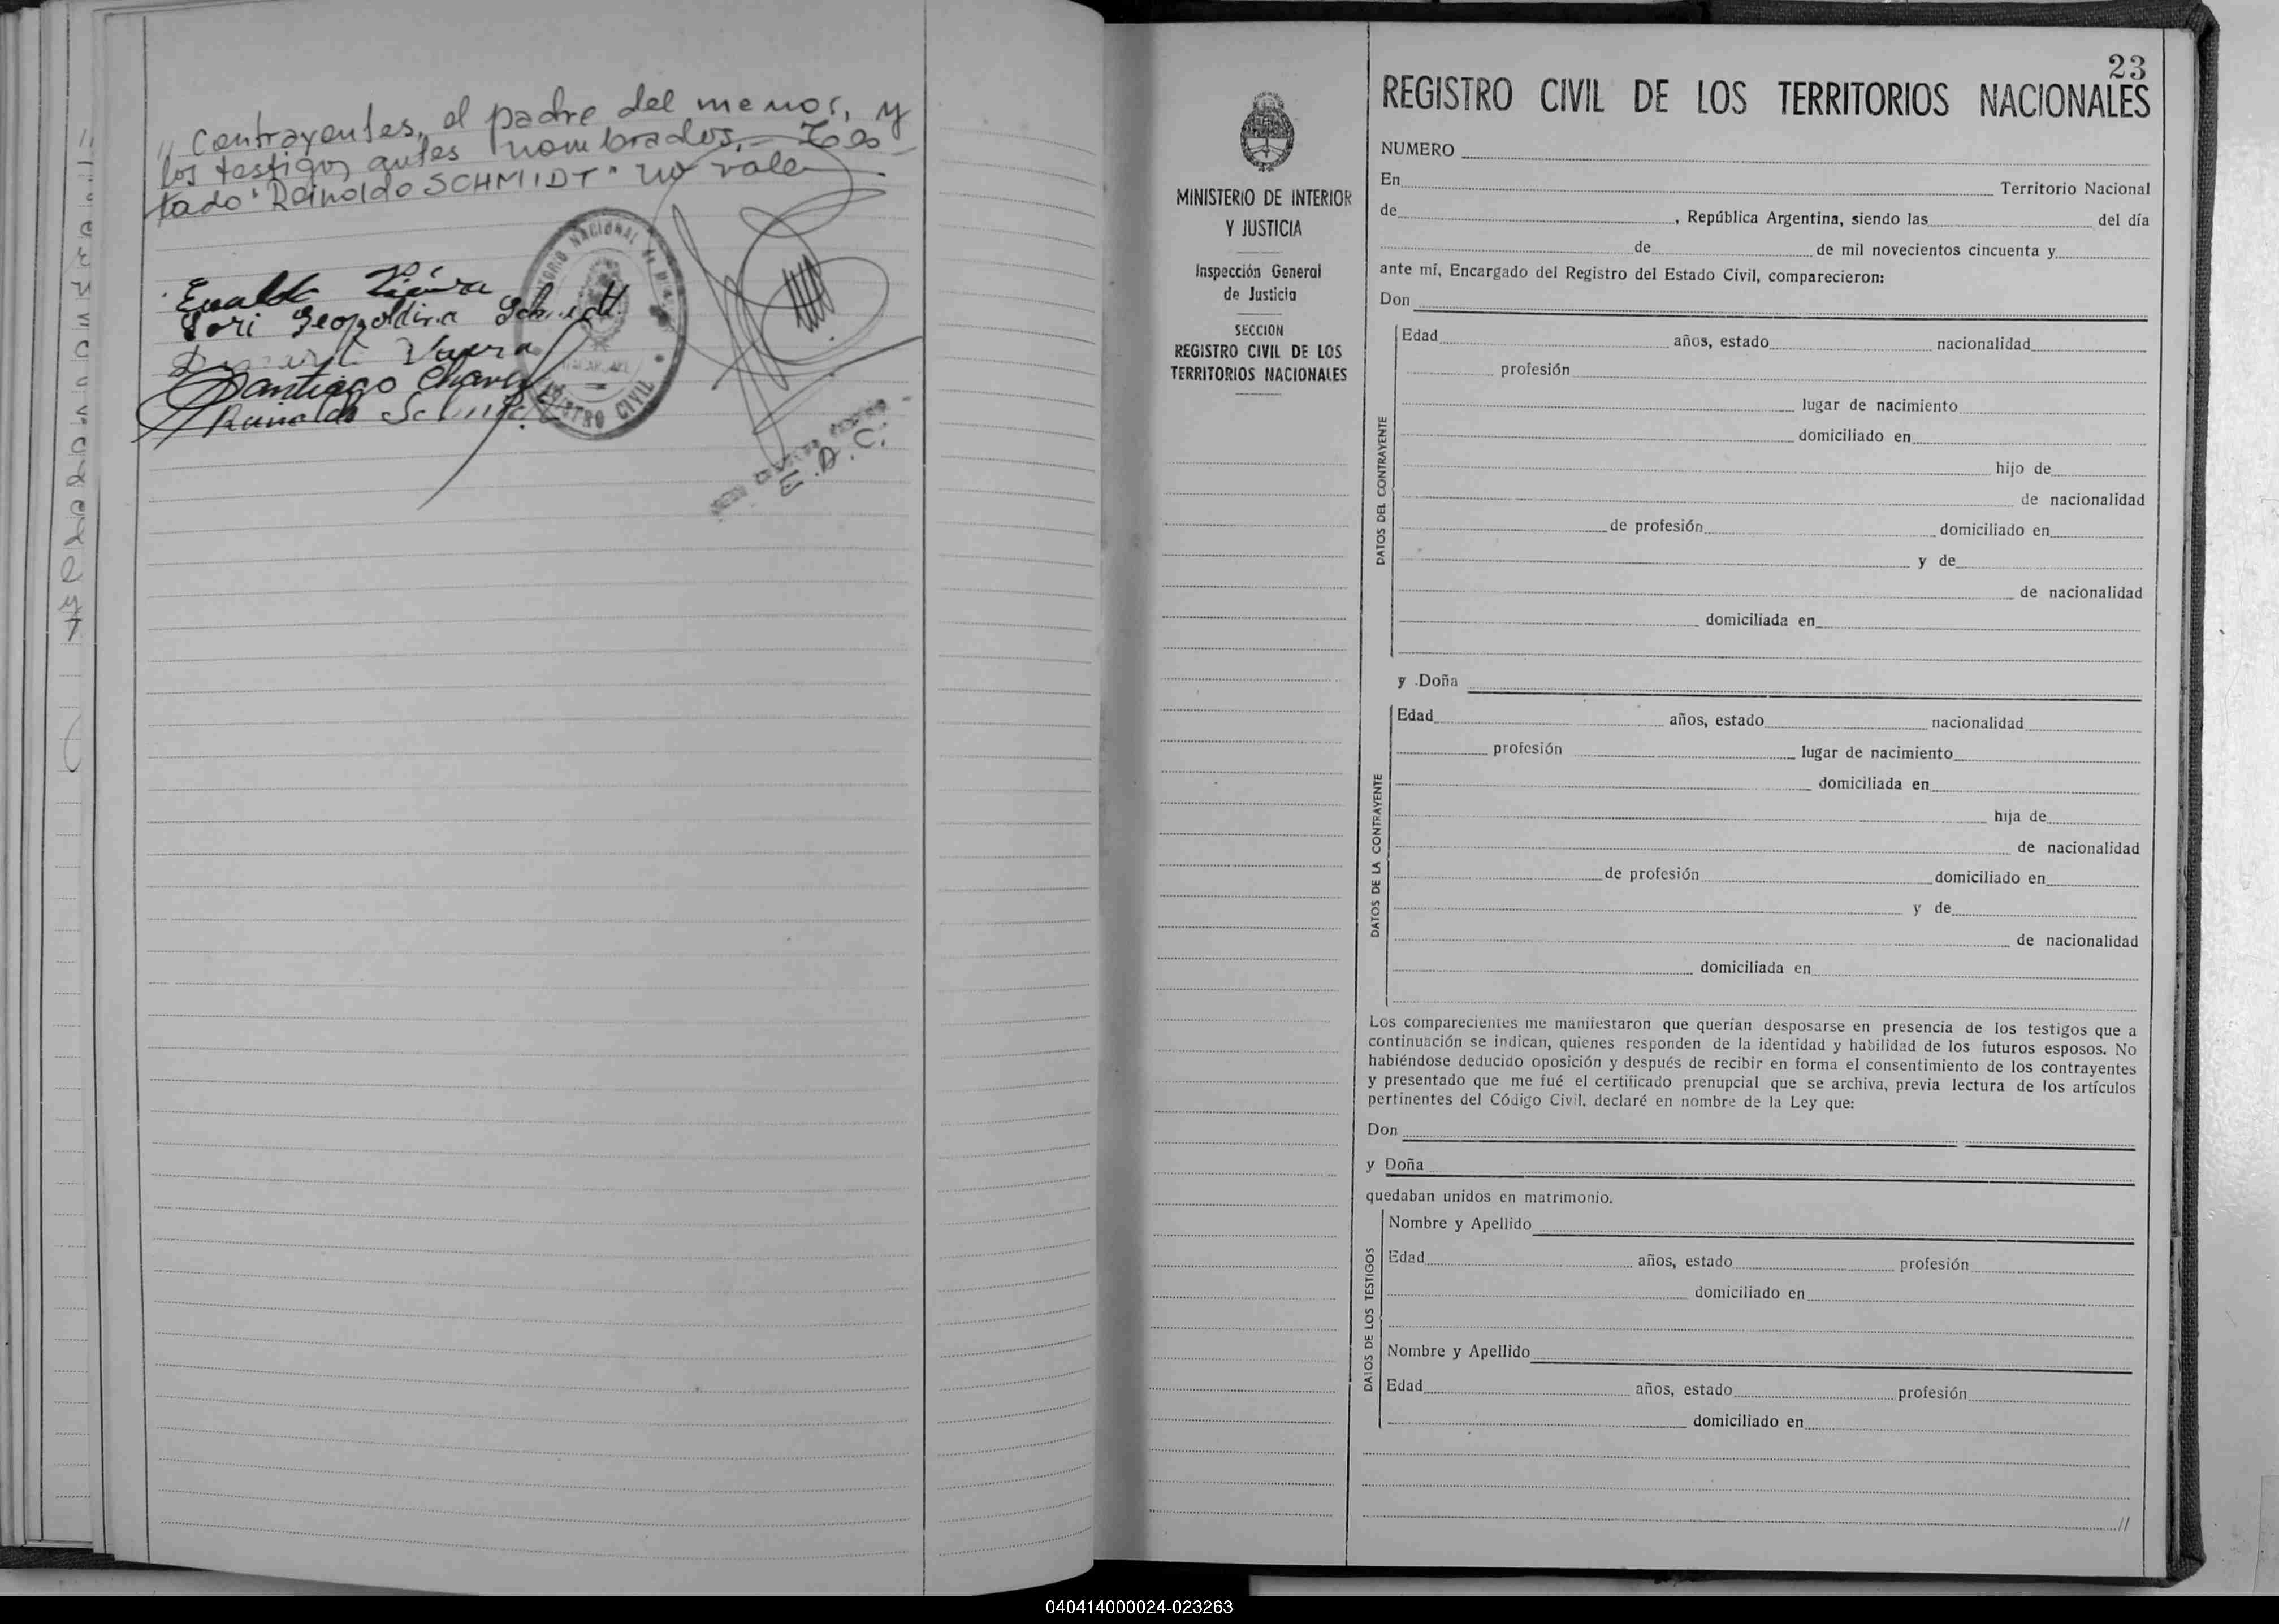 // Contrayentes, el padre del menor, y
los testigos antes nombrados.- Tes-
tado "Reinoldo SCHMIDT" no vale.
Evaldo
Lori Leopoldina Schmidt
Santiago Chavez
TERRITORIO NACIONAL DE
REGISTRO CIVIL
E.D.C.
23
REGISTRO CIVIL DE LOS TERRITORIOS NACIONALES
MINISTERIO DE INTERIOR
Y JUSTICIA
Inspección General
de Justicia
SECCION
REGISTRO CIVIL DE LOS
TERRITORIOS NACIONALES
NUMERO
En Territorio Nacional
de , República Argentina, siendo las del día
de de mil novecientos cincuenta y
ante mí, Encargado del Registro del Estado Civil, comparecieron:
Don
DATOS DEL CONTRAYENTE
Edad años, estado nacionalidad
profesión
lugar de nacimiento
domiciliado en
hijo de
de nacionalidad
de profesión domiciliado en
y de
de nacionalidad
domiciliada en
y Doña
DATOS DE LA CONTRAYENTE
Edad años, estado nacionalidad
profesión lugar de nacimiento
domiciliada en
hija de
de nacionalidad
de profesión domiciliado en
y de
de nacionalidad
domiciliada en
Los comparecientes me manifestaron que querían desposarse en presencia de los testigos que a
continuación se indican, quienes responden de la identidad y habilidad de los futuros esposos. No
habiéndose deducido oposición y después de recibir en forma el consentimiento de los contrayentes
y presentado que me fué el certificado prenupcial que se archiva, previa lectura de los artículos
pertinentes del Código Civil, declaré en nombre de la Ley que:
Don
y Doña
quedaban unidos en matrimonio.
DATOS DE LOS TESTIGOS
Nombre y Apellido
Edad años, estado profesión
domiciliado en
Nombre y Apellido
Edad años, estado profesión
domiciliado en
//
040414000024-023263